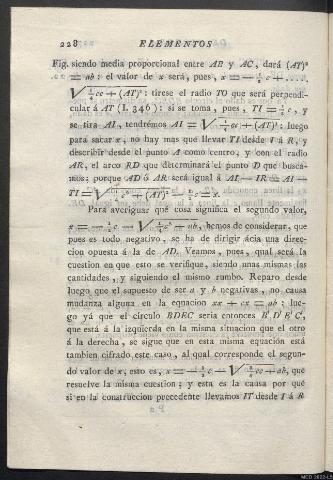 228 ELEMENTOS
Fig. siendo media proporcional entre AB y AC, dará (AT)²
= ab: el valor de x será, pues, x = — ½ c +
√¼cc + (AT)²: tirese el radio TO que será perpendi-
cular á AT (I. 346): si se toma, pues, TI = ½ c, y
se tira AI, tendrémos AI = √¼cc + (AT)²: luego
para sacar x, no hay mas que llevar TI desde I á R, y
describir desde el punto A como centro, y con el radio
AR, el arco RD que determinará el punto D que busca-
mos; porque AD ó AR será igual á AI — IR = AI —
TI = √¼cc + (AT)² — ½ c = x.
Para averiguar qué cosa significa el segundo valor,
x = — ½ c — √¼c² + ab, hemos de considerar, que
pues es todo negativo, se ha de dirigir ácia una direc-
cion opuesta á la de AD. Veamos, pues, qual será la
cuestion en que esto se verifique, siendo unas mismas las
cantidades, y siguiendo el mismo rumbo. Reparo desde
luego que el supuesto de ser a y b negativas, no causa
mudanza alguna en la equacion xx + cx = ab; lue-
go yá que el círculo BDEC seria entonces B'D'E'C',
que está á la izquierda en la misma situacion que el otro
á la derecha, se sigue que en esta misma equacion está
tambien cifrado este caso, al qual corresponde el segun-
do valor de x; esto es, x = — ½ c — √¼cc + ab, que
resuelve la misma cuestion; y esta es la causa por qué
si en la construccion precedente llevamos IT desde I á R